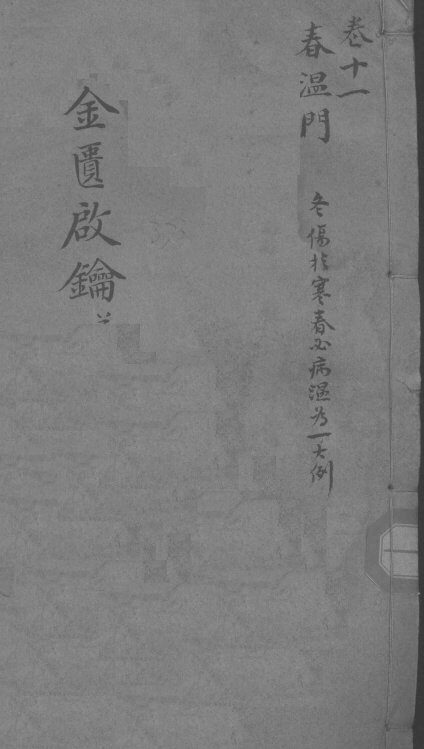 卷十一
春溫門
冬傷於寒春必病溫為一大例
金匱啟鑰